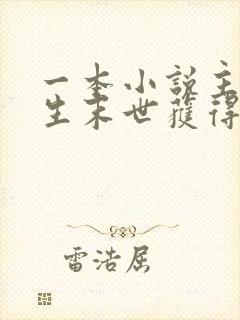 一本小说主
生末世獲得
雷浩屈